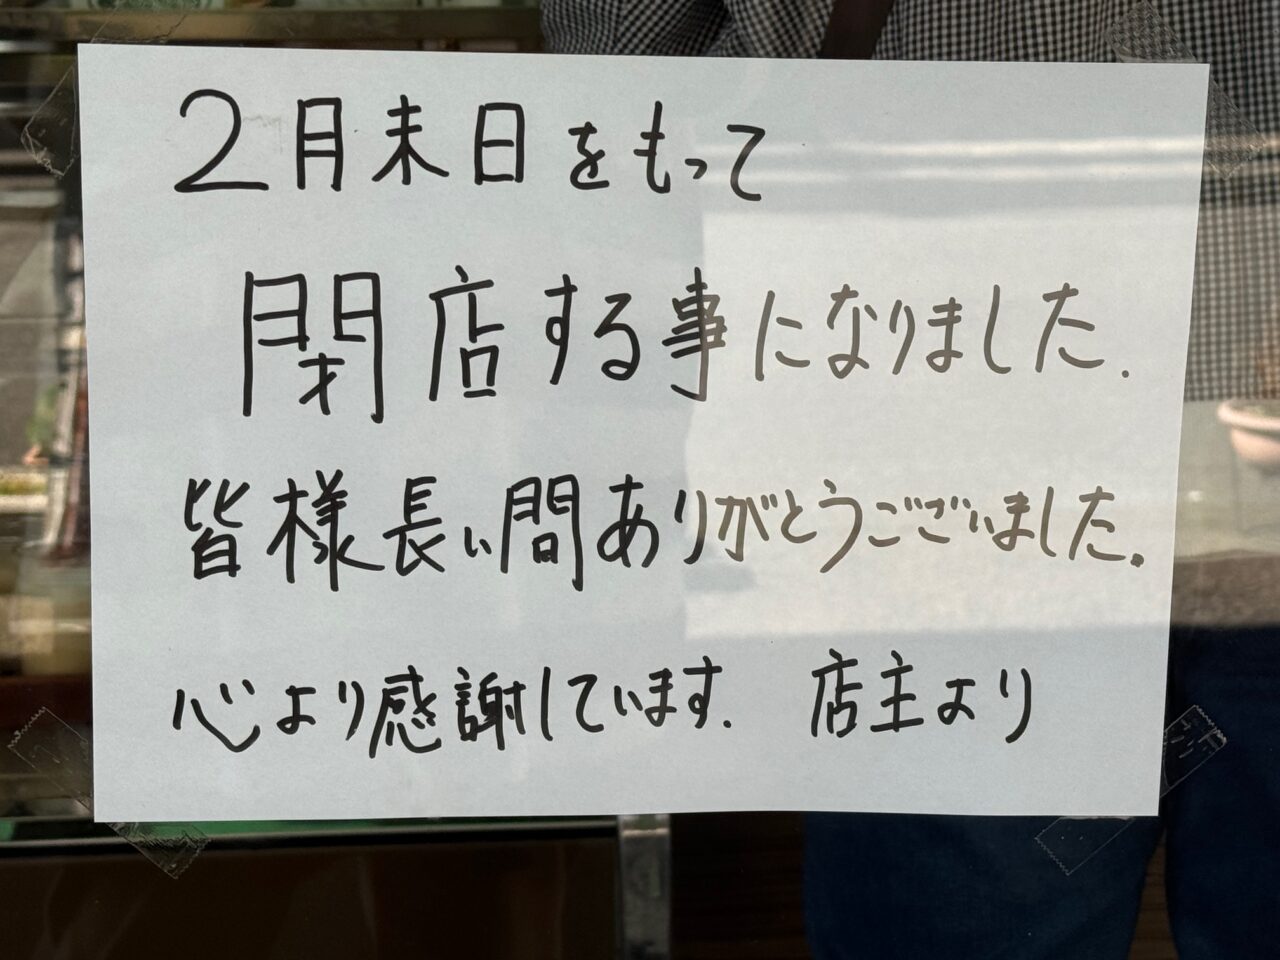 2月末日をもって
閉店する事になりました.
皆様長い間ありがとうございました。
心より感謝しています. 店主より